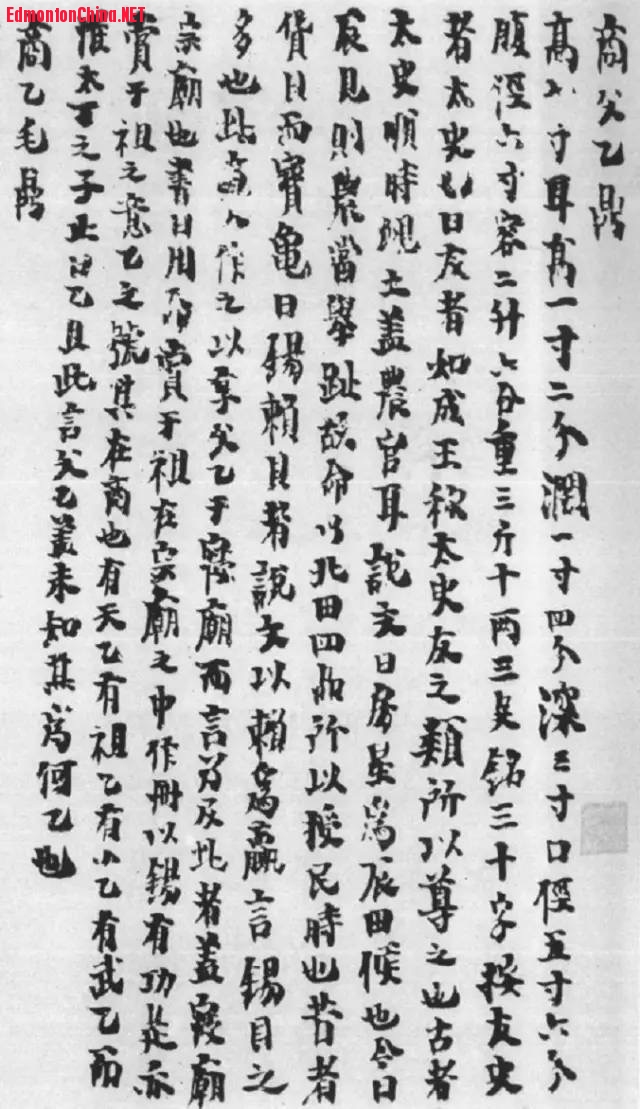 EdmontonChina.NET
商父乙鼎
高六寸耳高一寸二分濶一寸四分深三寸口徑五寸六分
腹徑六寸容二升六合重三斤十两三足銘三十字按友史
者太史也曰友者如成王称太史友之類所以尊之也古者
太史順時覛土盖農官耳說文曰房星為辰田候也今曰
辰見則農當舉趾故命以北田四品所以授民時也昔者
貨貝而寶龜曰錫賴貝者說文以賴為贏言錫貝之
多也此商人作之以享父乙于寢廟而言乃及此者盖寢廟
宗廟也書曰用命賞于祖在宗廟之中作冊以錫有功是亦
賞于祖之意乙之號其在商也有天乙有祖乙有小乙有武乙而
惟太丁之子止曰乙且此言父乙盖未知其為何乙也
商乙毛鼎